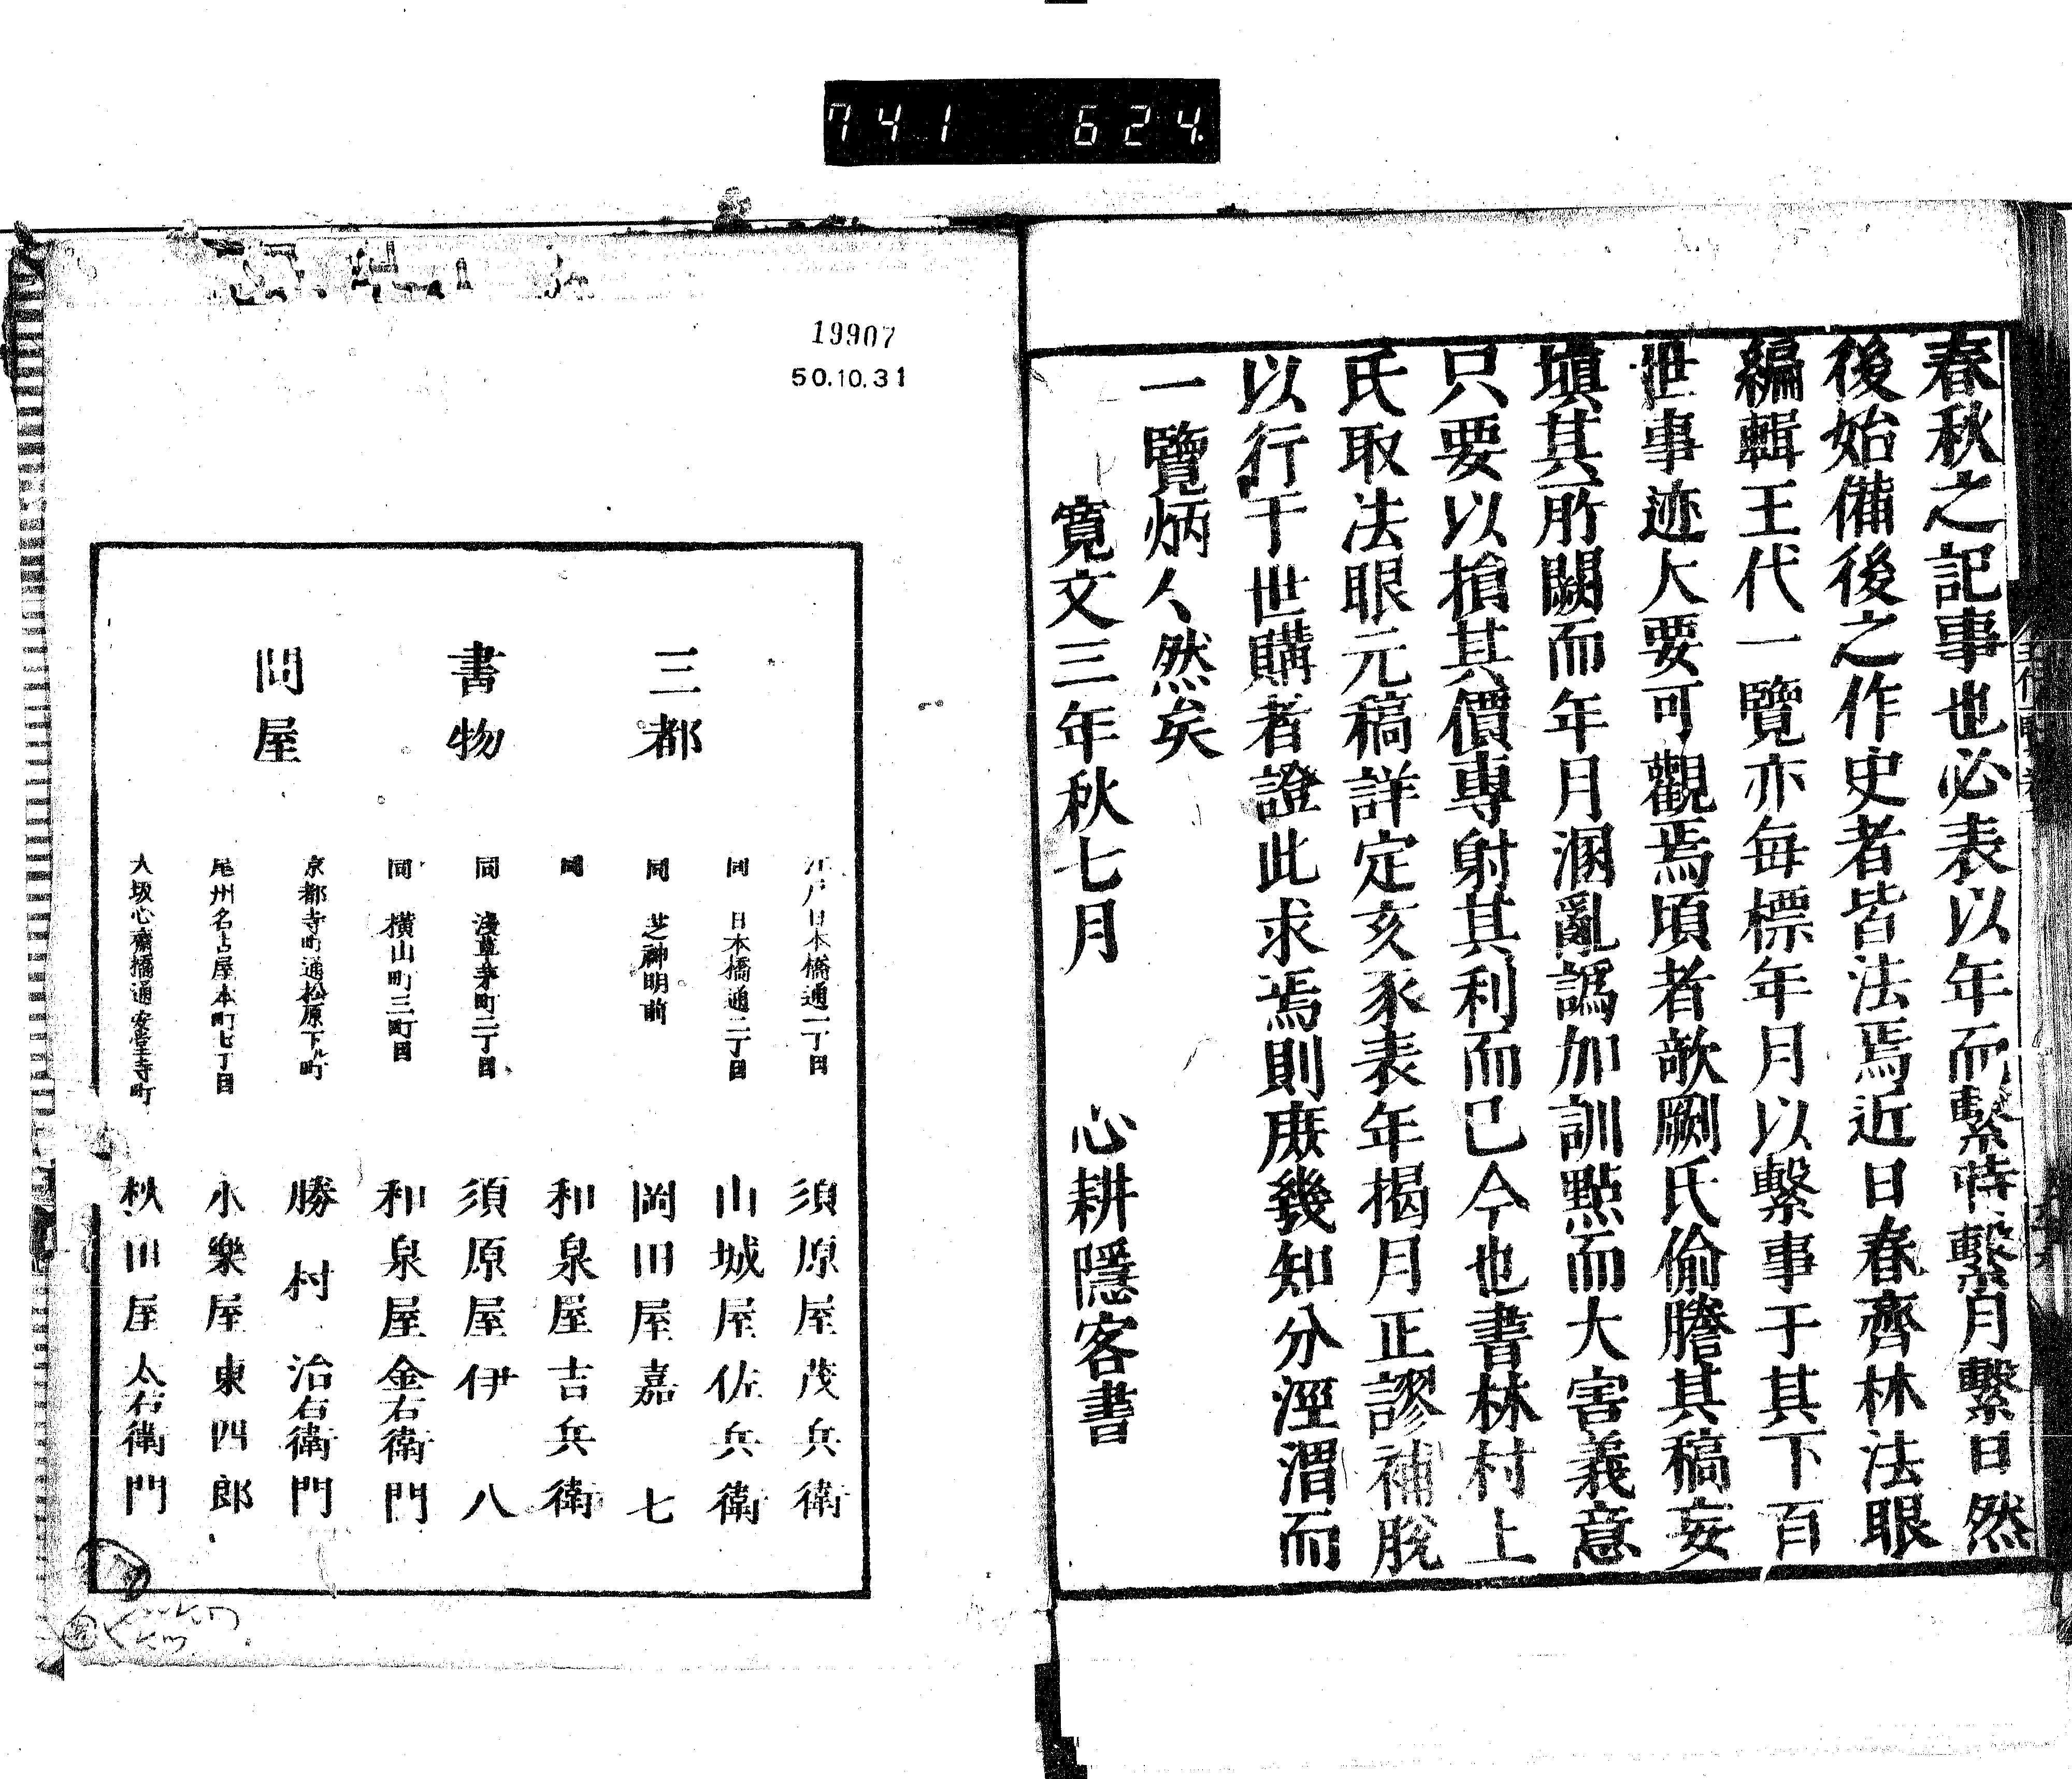 741 624
春秋之記事也必表以年而繫時繫月繫日然
後始備後之作史者皆法焉近日春齊林法眼
編輯王代一覽亦每標年月以繫事于其下百
世事迹大要可觀焉頃者歒劂氏偷謄其稿妄
塡其所闕而年月溷亂譌加訓點而大害義意
只要以搶其價專射其利而已今也書林村上
氏取法眼元稿詳定亥豕表年揭月正謬補脫
以行于世購者證此求焉則庶幾知分涇渭而
一覽炳人然矣
寬文三年秋七月 心耕隱客書
19907
50.10.31
三都
書物
問屋
江戶日本橋通一丁目 須原屋茂兵衛
同 日本橋通二丁目 山城屋佐兵衛
同 芝神明前 岡田屋嘉七
同 和泉屋吉兵衛
同 淺草茅町二丁目 須原屋伊八
同 橫山町三町目 和泉屋金右衛門
京都寺町通松原下ル町 勝村治右衛門
尾州名古屋本町七丁目 永樂屋東四郎
大坂心齋橋通安堂寺町 秋田屋太右衛門